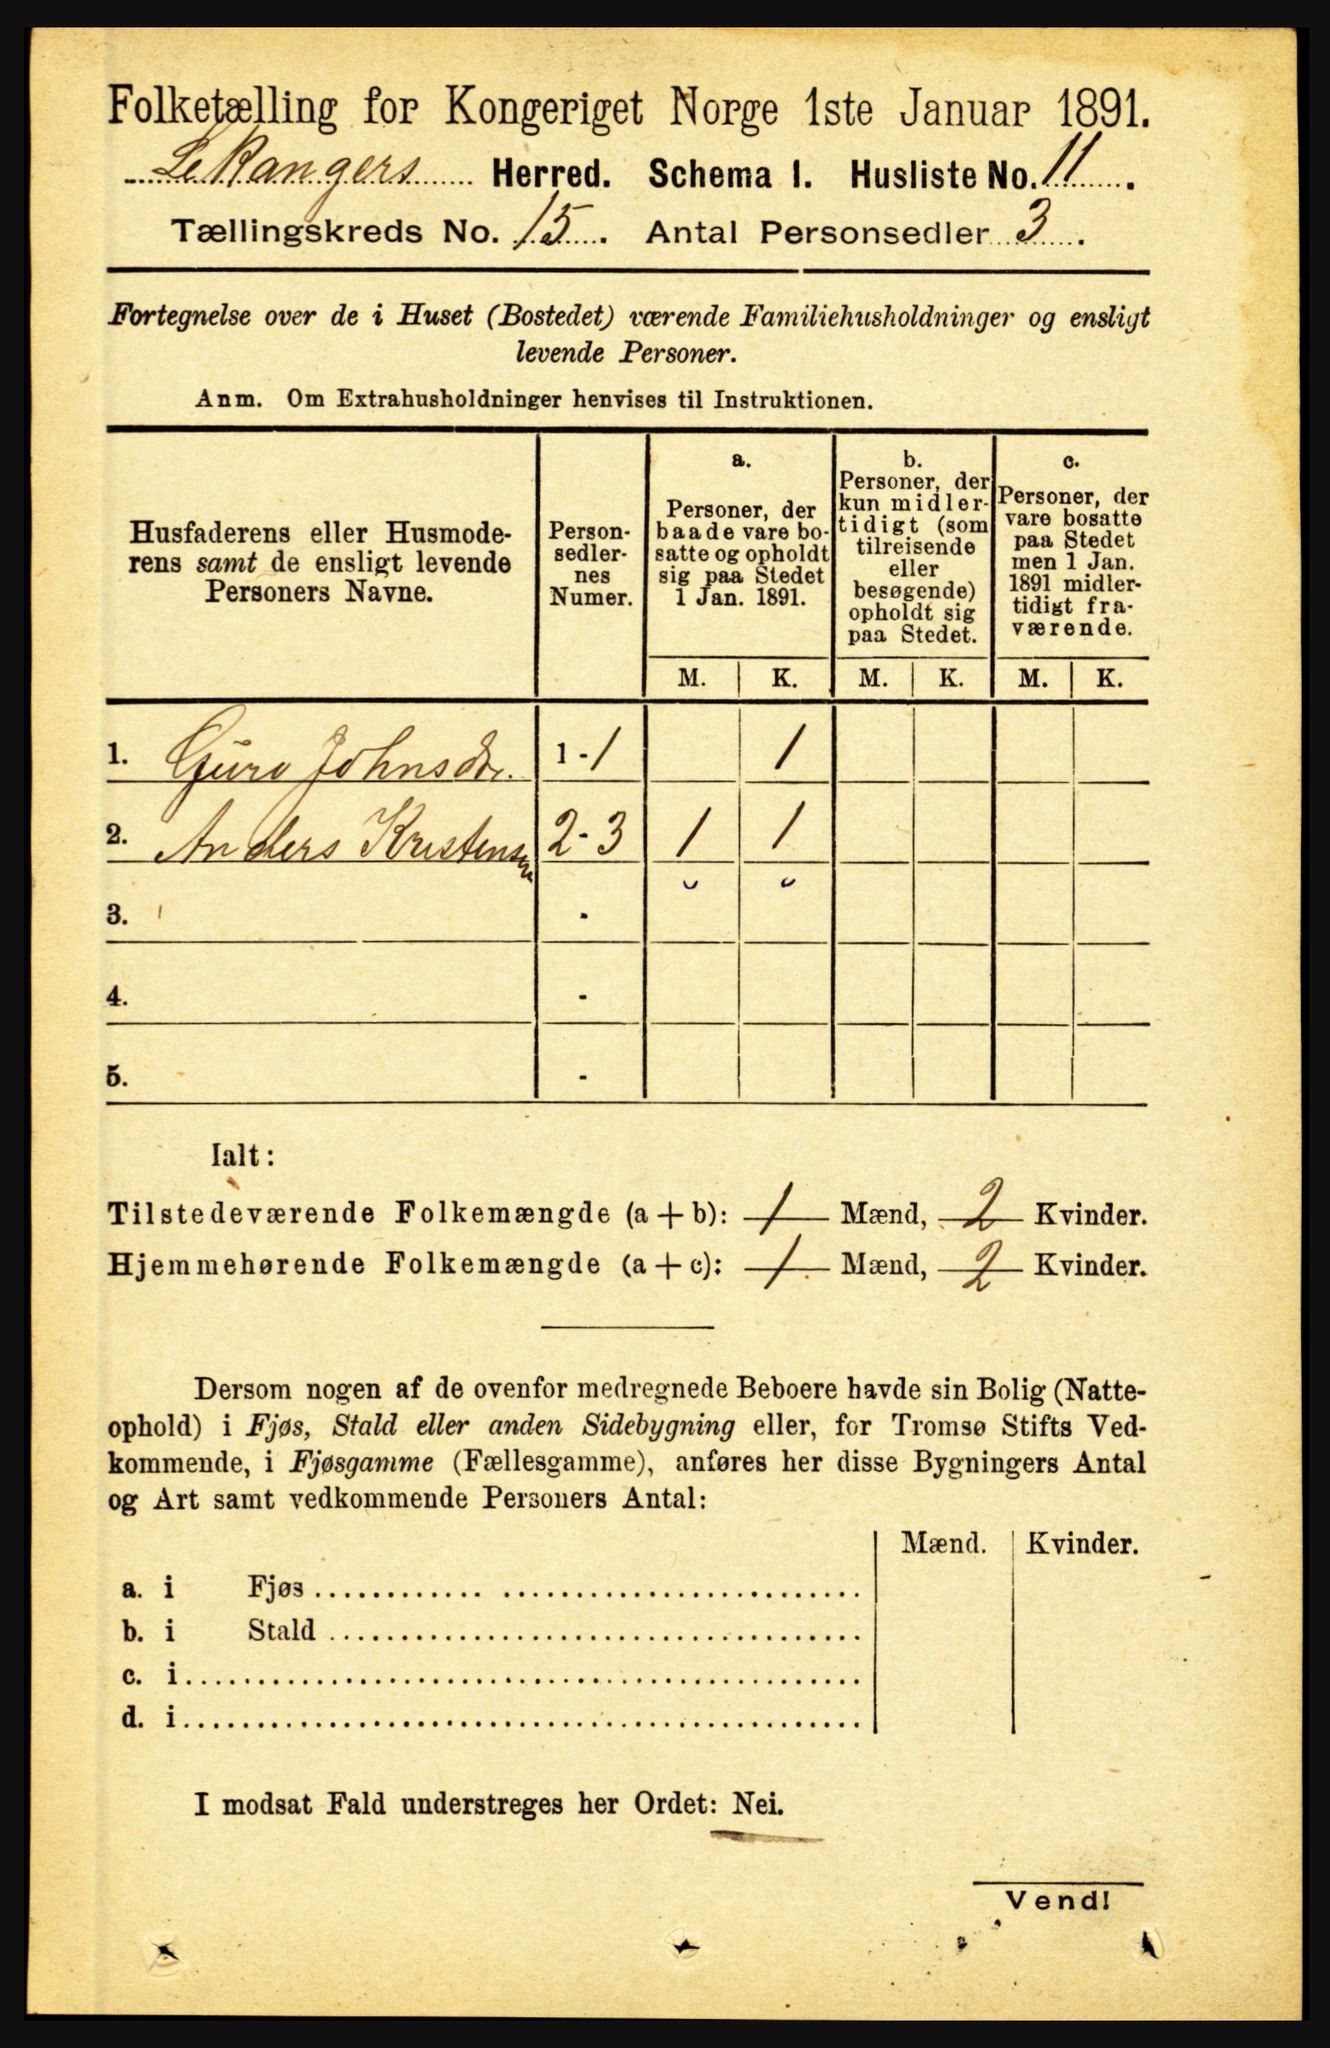 Folketælling for Kongeriget Norge 1ste Januar 1891.
Leikangers Herred. Schema 1. Husliste No. 11.
Tællingskreds No. 15. Antal Personsedler 3.
Fortegnelse over de i Huset (Bostedet) værende Familiehusholdninger og ensligt
levende Personer.
Anm. Om Extrahusholdninger henvises til Instruktionen.
Husfaderens eller Husmode-
rens samt de ensligt levende
Personers Navne.
Person-
sedler-
nes
Numer.
a.
Personer, der
baade vare bo-
satte og opholdt
sig paa Stedet
1 Jan. 1891.
b.
Personer, der
kun midler-
tidigt (som
tilreisende
eller
besøgende)
opholdt sig
paa Stedet.
c.
Personer, der
vare bosatte
paa Stedet
men 1 Jan.
1891 midler-
tidigt fra-
værende.
M. K. M. K. M. K.
1. Guro Johnsdr. 1-1 1
2. Anders Kristensen 2-3 1 1
3. -
4. -
5. -
Ialt:
Tilstedeværende Folkemængde (a + b): 1 Mænd, 2 Kvinder.
Hjemmehørende Folkemængde (a + c): 1 Mænd, 2 Kvinder.
Dersom nogen af de ovenfor medregnede Beboere havde sin Bolig (Natte-
ophold) i Fjøs, Stald eller anden Sidebygning eller, for Tromsø Stifts Ved-
kommende, i Fjøsgamme (Fællesgamme), anføres her disse Bygningers Antal
og Art samt vedkommende Personers Antal:
Mænd. Kvinder.
a. i Fjøs
b. i Stald
c. i
d. i
I modsat Fald understreges her Ordet: Nei.
Vend!